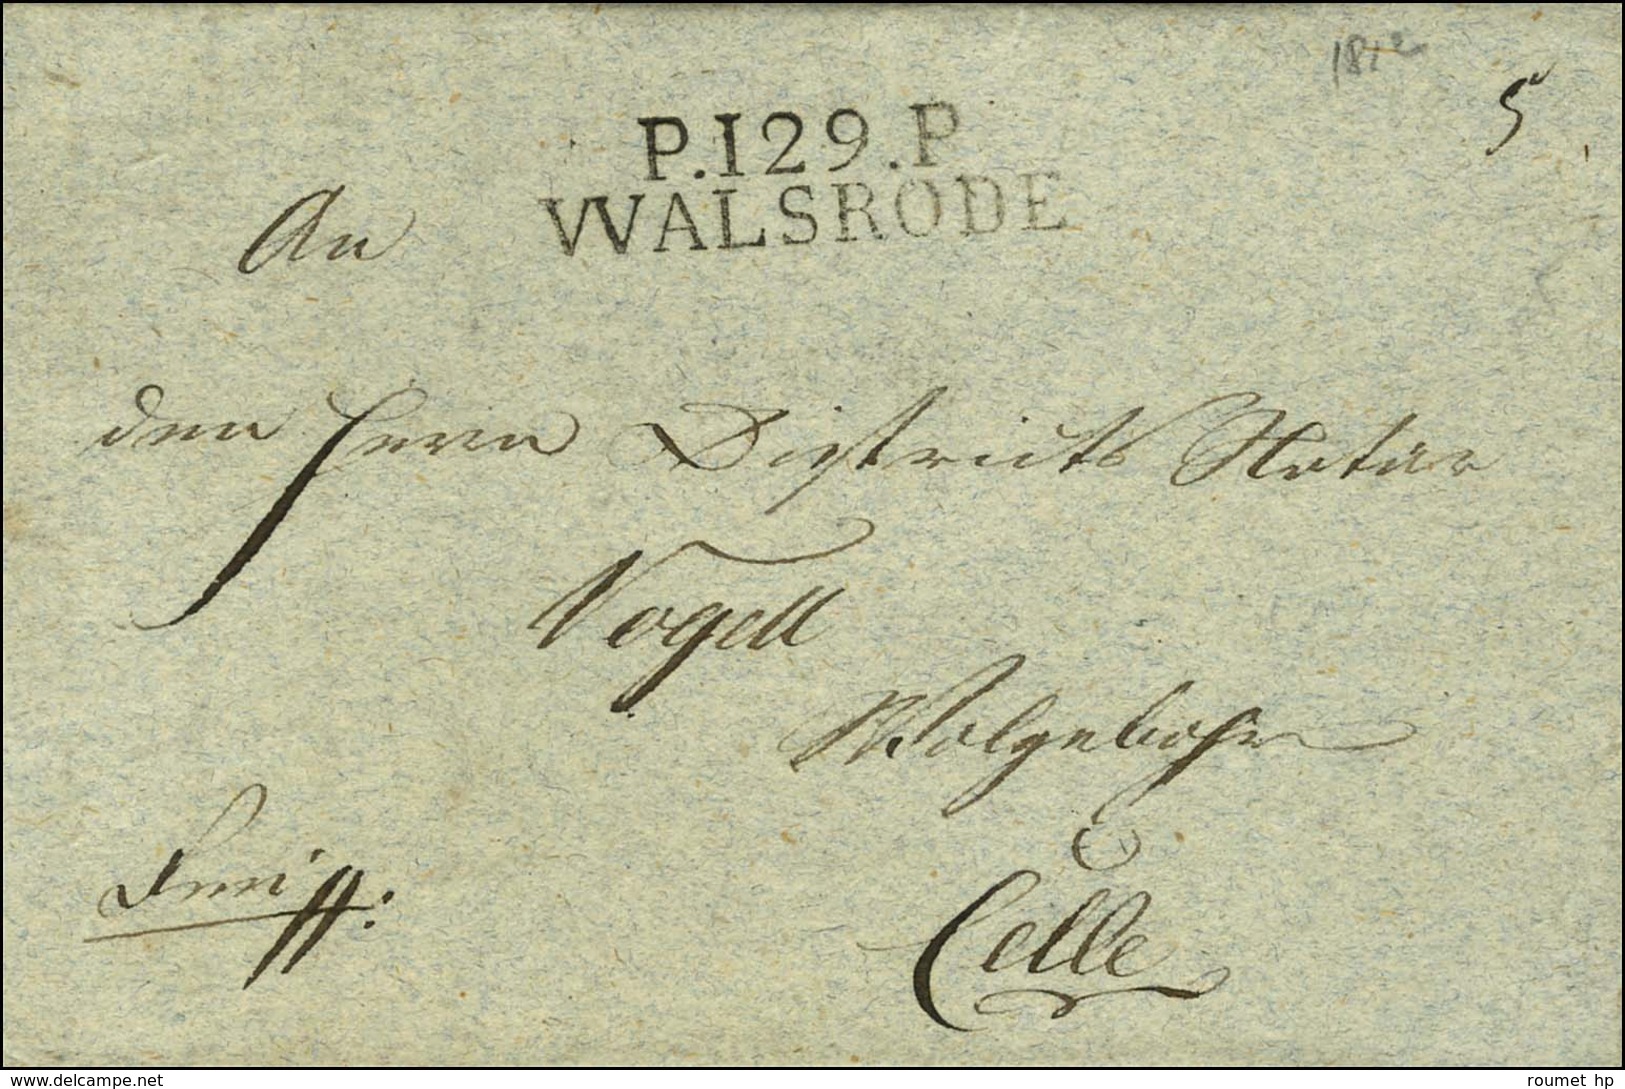 1812
5
P.129.P
WALSRODE
An
den Herrn Districts Notar
Vogell
Wolgebohrn
Celle
www.delcampe.net
roumet hp